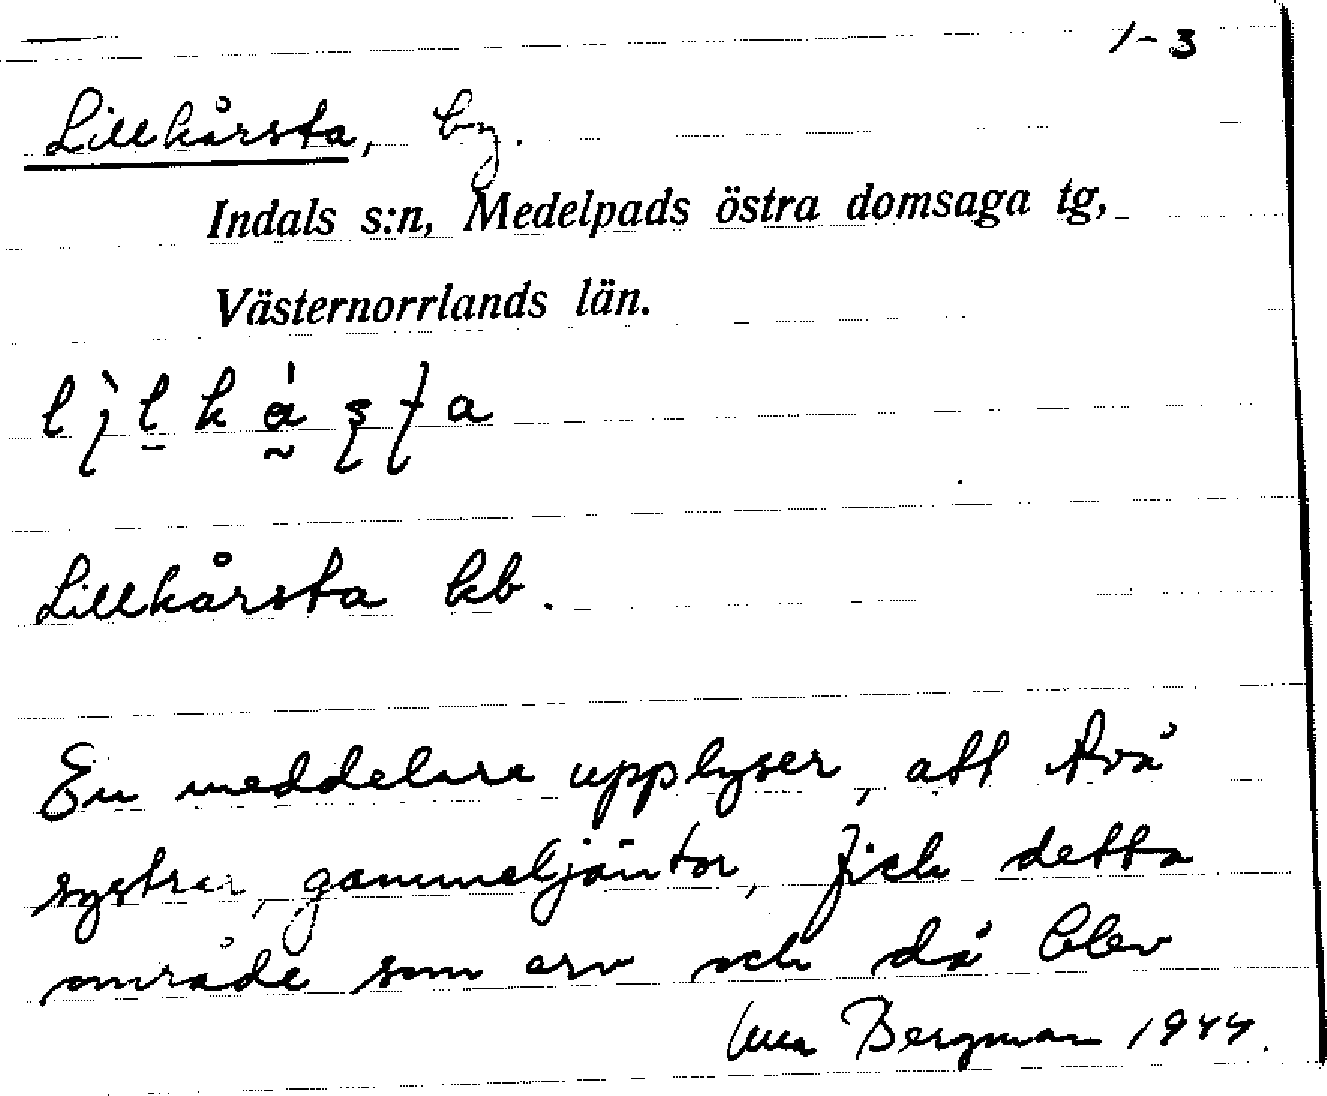 1-3
Lillkårsta, by.
Indals s:n, Medelpads östra domsaga tg,
Västernorrlands län.
Lillkårsta kb.
En meddelare upplyser, att två
systrar, gammeljäntor, fick detta
område som arv och då blev
Bergman 1944.